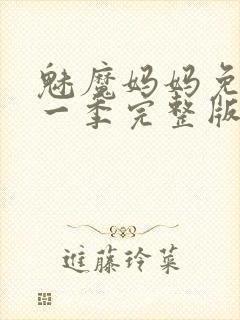 魅魔妈妈免
一季完整版
進藤玲菜